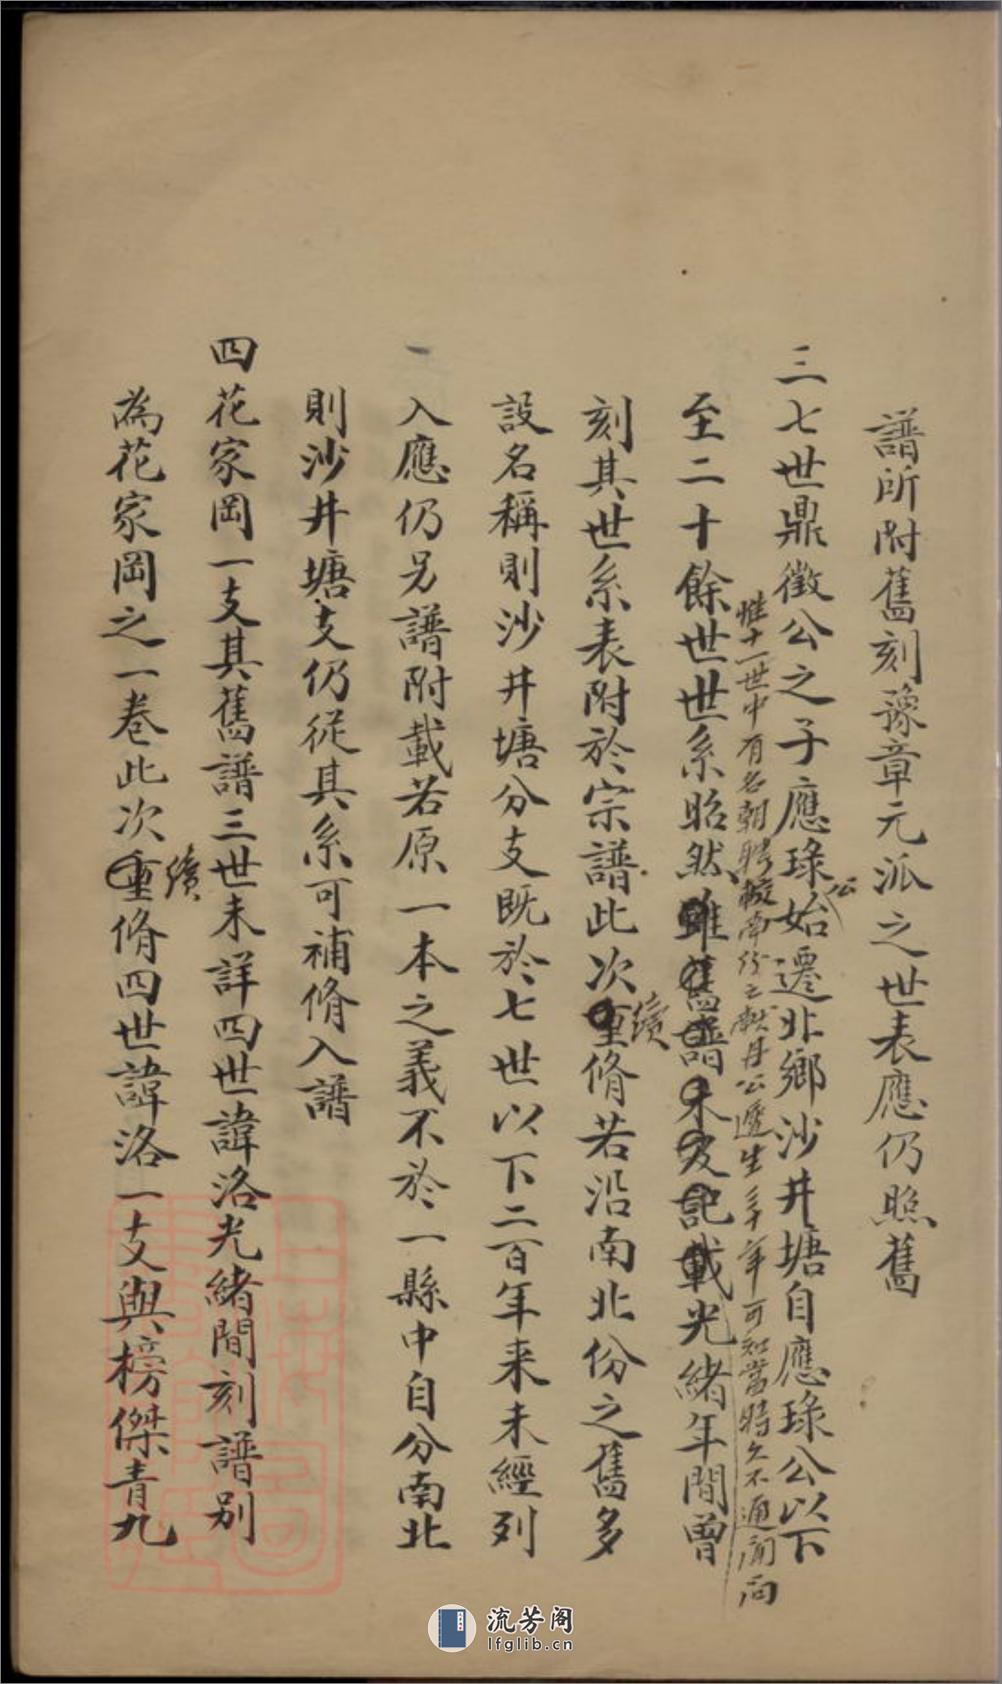 譜所附舊刻豫章元派之世表應仍照舊
三七世鼎徵公之子應琭公始遷北鄉沙井塘自應琭公以下
惟十一世中有名朝聘較南份之獻丹公遲生三十年可知當時久不通聞問
至二十餘世世系昭然雖舊譜未及記載光緒年間曾
刻其世系表附於宗譜此次重續脩若沿南北份之舊多
設名稱則沙井塘分支既於七世以下二百年來未經列
入應仍另譜附載若原一本之義不於一縣中自分南北
則沙井塘支仍從其系可補脩入譜
四花家岡一支其舊譜三世未詳四世諱洛光緒間刻譜别
為花家岡之一卷此次重續脩四世諱洛一支與榜傑青九
流芳阁
lfglib.cn